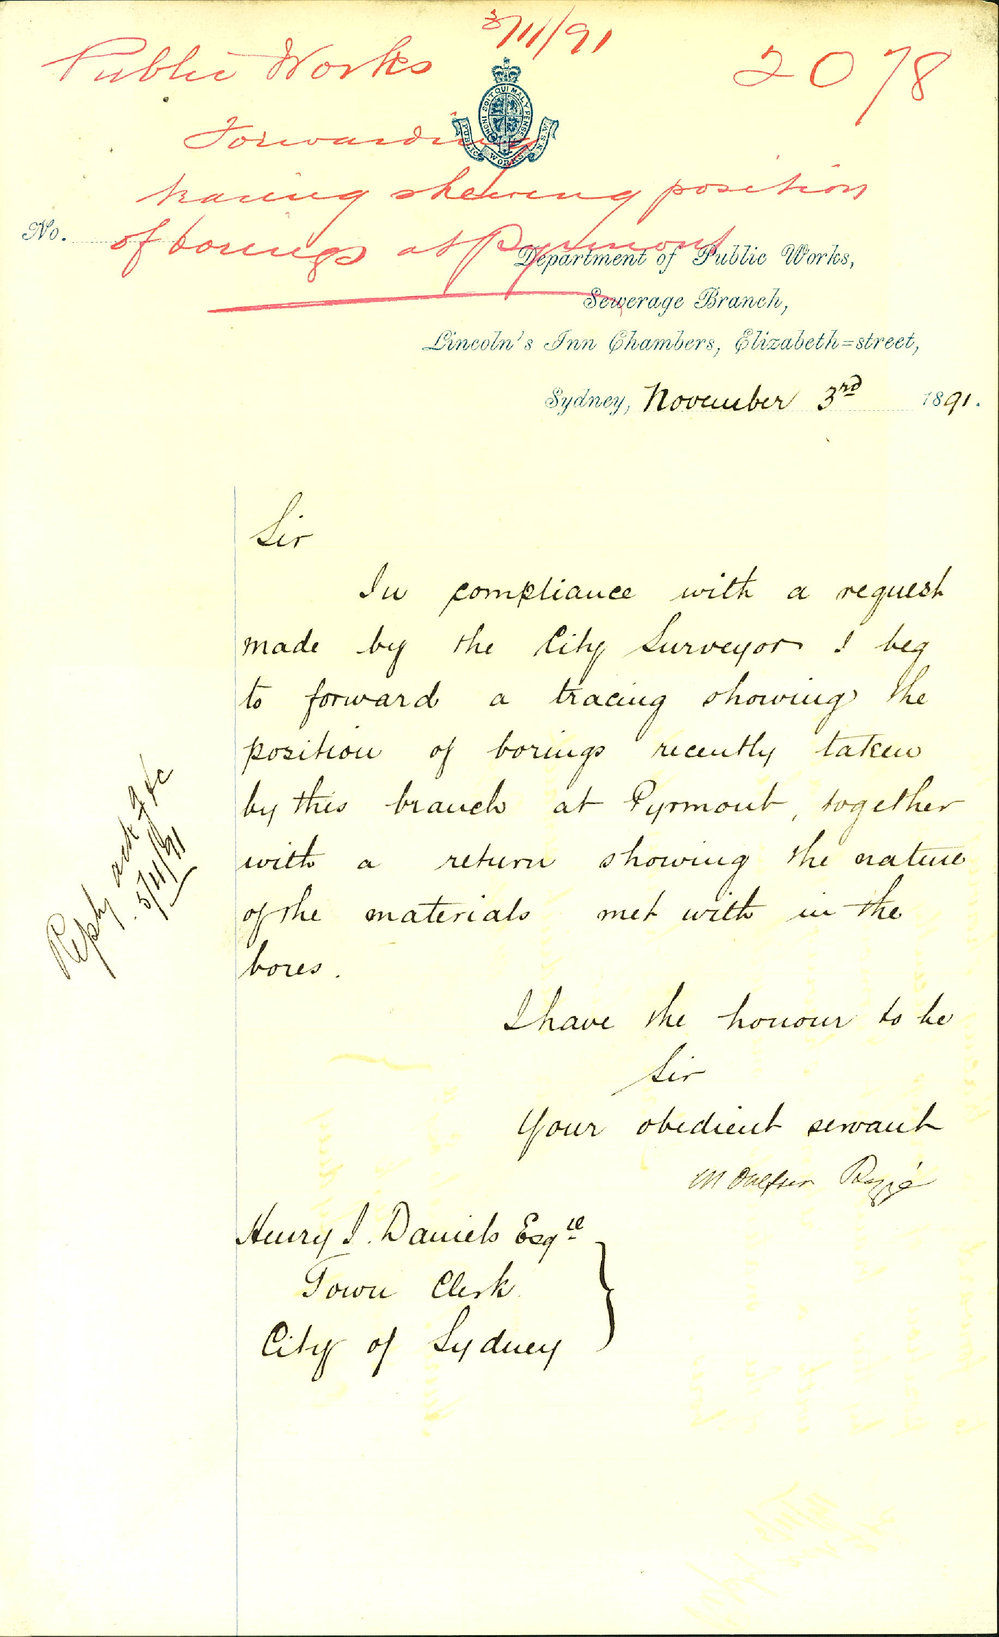 3/11/91
Public Works
2078
Forwarding
tracing shewing position
of borings at Pyrmont
HONI SOIT QUI MAL Y PENSE
PUBLIC WORKS N.S.W.
No.
Department of Public Works,
Sewerage Branch,
Lincoln's Inn Chambers, Elizabeth=street,
Sydney, November 3rd 1891.
Sir
In compliance with a request
made by the City Surveyor I beg
to forward a tracing showing the
position of borings recently taken
by this branch at Pyrmont, together
with a return showing the nature
of the materials met with in the
bores.
I have the honour to be
Sir
Your obedient servant
Henry J. Daniels Esqre
Town Clerk
City of Sydney
Reply ack
5/11/91